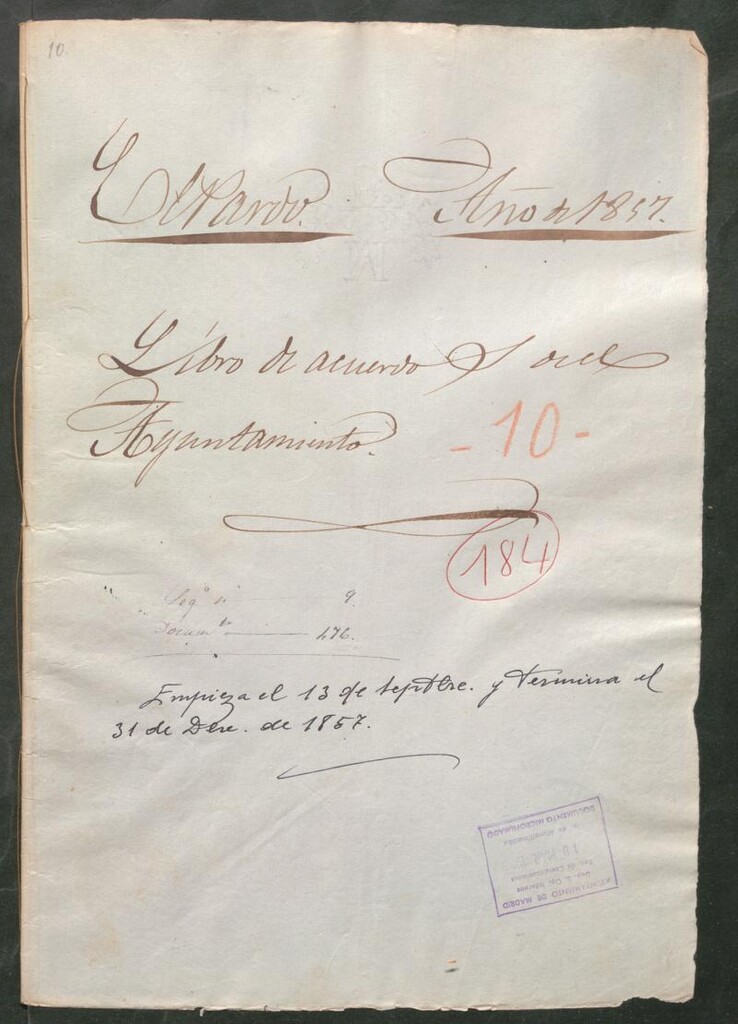 10.
El Pardo. Año de 1857.
Libro de acuerdos del
Ayuntamiento.
- 10 -
184
Leg.º n.º 9.
Docum.to 476.
Empieza el 13 de Septbre. y termina el
31 de Dbre. de 1857.
AYUNTAMIENTO DE MADRID
DOCUMENTO MICROFILMADO